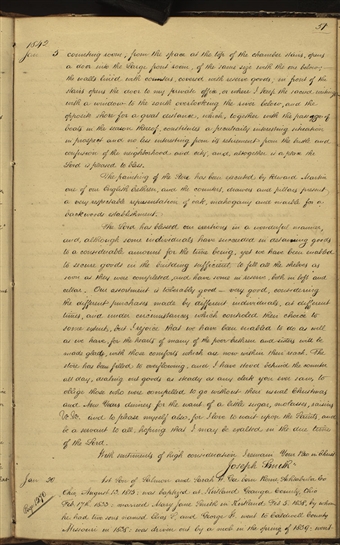 37
1842
Jan. 5 counting room; from the space at the top of the chamber stairs, opens
a door into the large front room, of the same size with the one below,
the walls lined with counters, covered with reserve goods; in front of the
stairs opens the door to my private office, or where I keep the sacred writings
with a window to the south overlooking the river below, and the
opposite shore for a great distance, which, together with the passage of
boats in the season thereof, constitutes a peculiarly interesting situation
in prospect and no less interesting from its retirement from the bustle and
confusion of the neighborhood and city, and altogether is a place the
Lord is pleased to bless.
The painting of the Store has been executed by Edward Martin
one of our English brethren, and the counters, drawers and pillars present
a very respectable representation of oak, mahogany and marble for a
backwoods establishment.
The Lord has blessed our exertions in a wonderful manner,
and although some individuals have succeeded in detaining goods
to a considerable amount for the time being, yet we have been enabled
to secure goods in the building sufficient to fill all the shelves as
soon as they were completed, and have some in reserve, both in loft and
cellar. Our assortment is tolerably good — very good, considering
the different purchases made by different individuals, at different
times, and under circumstances which controlled their choice to
some extent; but I rejoice that we have been enabled to do as well
as we have, for the hearts of many of the poor brethren and sisters will be
made glad, with those comforts which are now within their reach. The
store has been filled to overflowing, and I have stood behind the counter
all day, dealing out goods as steady as any clerk you ever saw, to
oblige those who were compelled to go without their usual Christmas
and New Years dinners for the want of a little sugar, molasses, raisins
&c. &c. and to please myself also, for I love to wait upon the Saints, and
be a servant to all, hoping that I may be exalted in the due time
of the Lord.
With sentiments of high consideration I remain Your Bro. in Christ
Joseph Smith.
Jan. 30
Ohio, August 1833; was baptized at Kirtland, Geauga County, Ohio
married Mary Jane Smith in Kirtland, Feb 5, 1838, by whom
he had two sons named and George S. went to Caldwell County
Missouri in 1838; was driven out by a mob in the spring of 1839; went